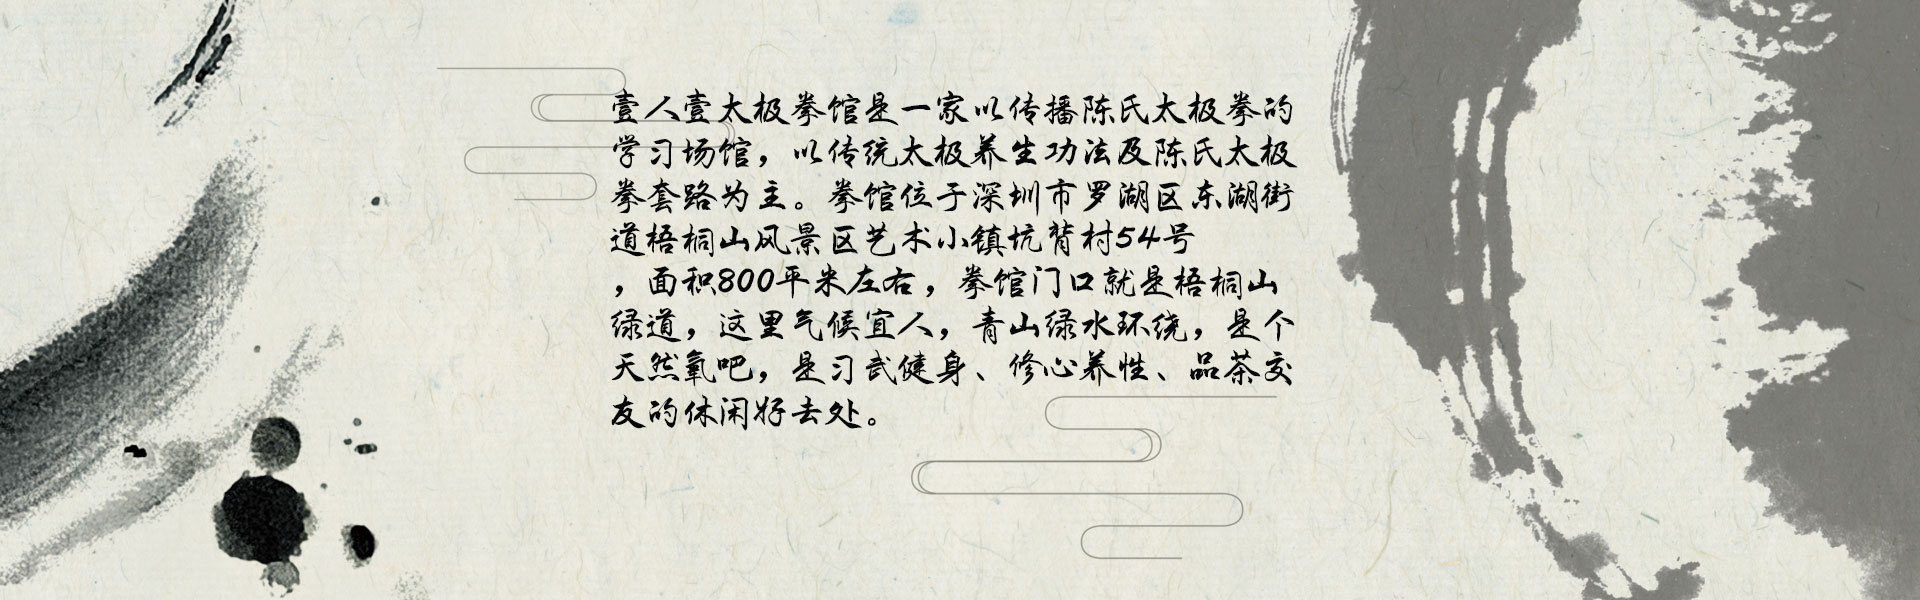 壹人壹太极拳馆是一家以传播陈氏太极拳的
学习场馆，以传统太极养生功法及陈氏太极
拳套路为主。拳馆位于深圳市罗湖区东湖街
道梧桐山风景区艺术小镇坑背村54号
，面积800平米左右，拳馆门口就是梧桐山
绿道，这里气候宜人，青山绿水环绕，是个
天然氧吧，是习武健身、修心养性、品茶交
友的休闲好去处。